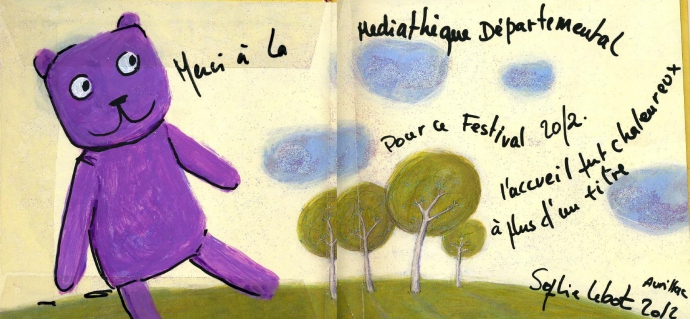 Merci à la
Médiathèque Départemental
pour ce Festival 2012.
l'accueil fut chaleureux
à plus d'un titre
Sophie Lebot
Aurillac
2012